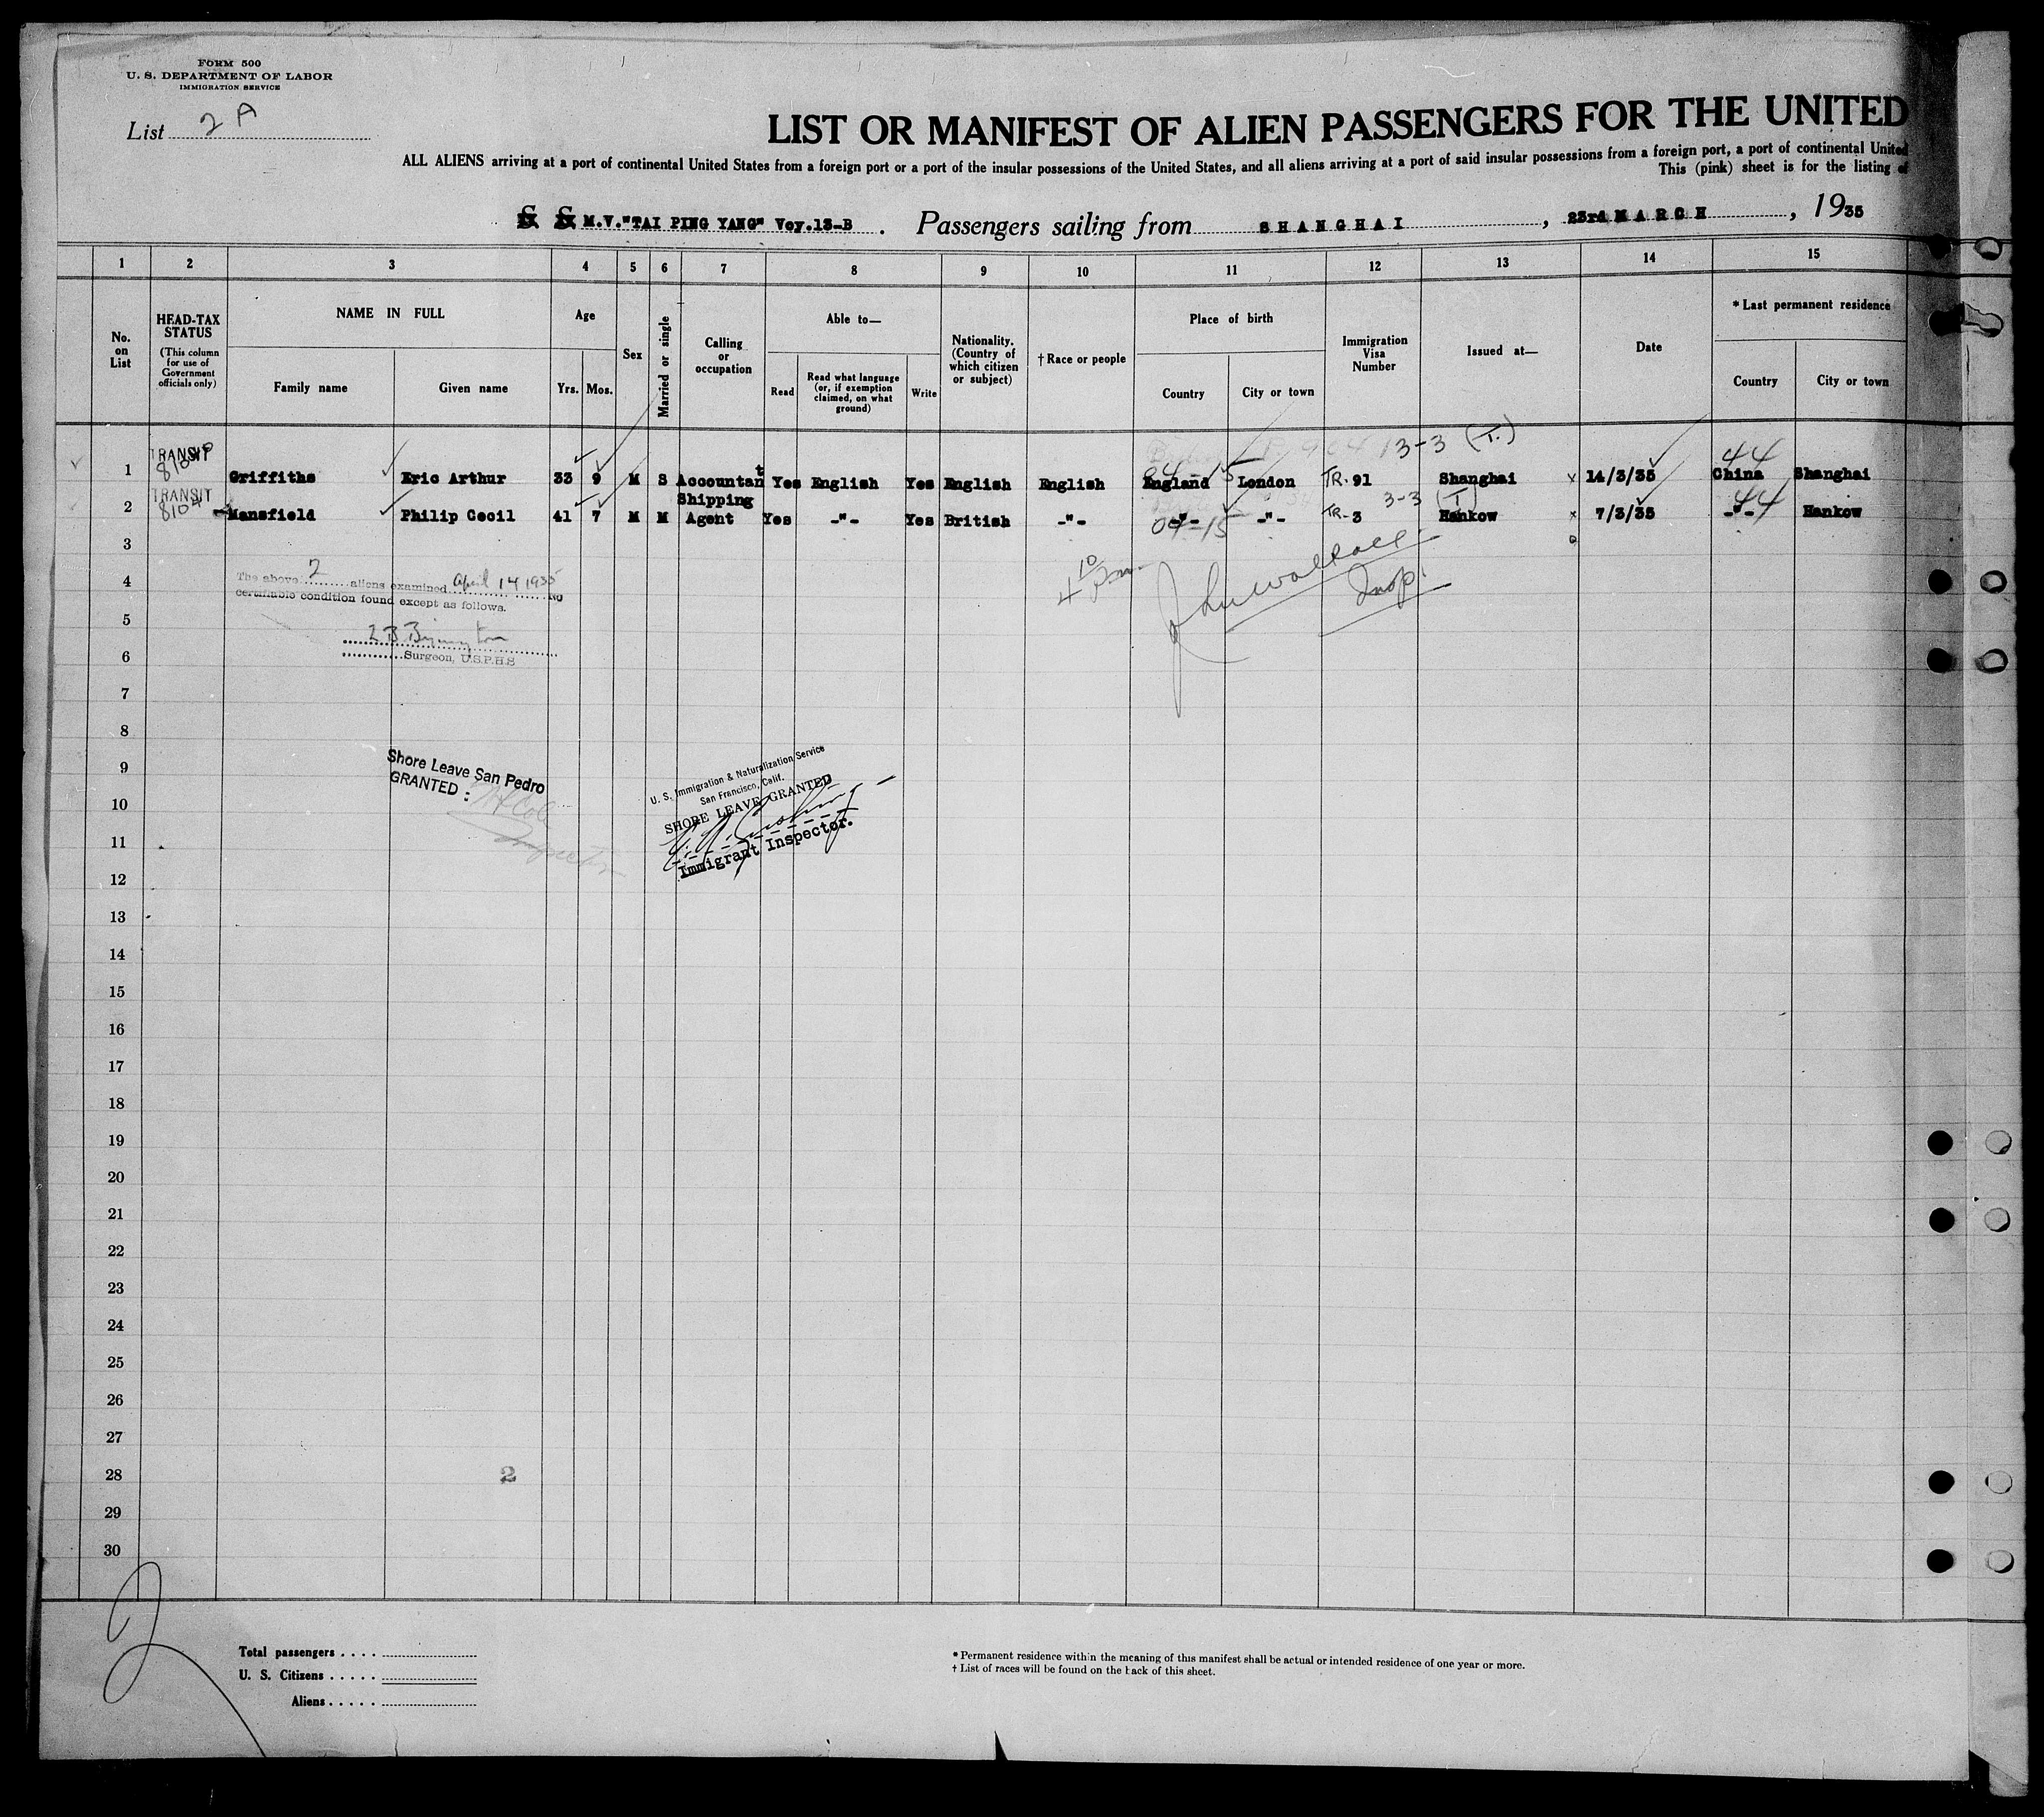 FORM 500
U. S. DEPARTMENT OF LABOR
IMMIGRATION SERVICE
List 2 A
LIST OR MANIFEST OF ALIEN PASSENGERS FOR THE UNITED
ALL ALIENS arriving at a port of continental United States from a foreign port or a port of the insular possessions of the United States, and all aliens arriving at a port of said insular possessions from a foreign port, a port of continental United
This (pink) sheet is for the listing of
S S M.V."TAI PING YANG" Voy.13-B . Passengers sailing from SHANGHAI , 23rd MARCH , 1935
1 2 3 4 5 6 7 8 9 10 11 12 13 14 15
No. on List
HEAD-TAX STATUS (This column for use of Government officials only)
NAME IN FULL
Family name Given name
Age
Yrs. Mos.
Sex
Married or single
Calling or occupation
Able to—
Read Read what language (or, if exemption claimed, on what ground) Write
Nationality. (Country of which citizen or subject)
† Race or people
Place of birth
Country City or town
Immigration Visa Number
Issued at—
Date
* Last permanent residence
Country City or town
13-3 (T.) 44
1 TRANSIT Griffiths Eric Arthur 33 9 M S Accountant Yes English Yes English English England London TR. 91 Shanghai x 14/3/35 China Shanghai
3-3 (T) 44
2 TRANSIT 8104 Mansfield Philip Cecil 41 7 M M Shipping Agent Yes -"- Yes British -"- -"- -"- TR- 3 Hankow x 7/3/35 -"- Hankow
04-15
3
4
5
6
7
8
9
10
11
12
13
14
15
16
17
18
19
20
21
22
23
24
25
26
27
28
29
30
The above 2 aliens examined April 14 1935 No
certifiable condition found except as follows.
Surgeon, U.S.P.H.S
4 10 pm
Jno Wallace
Insp.
Shore Leave San Pedro
GRANTED :
Inspector
U. S. Immigration & Naturalization Service
San Francisco, Calif.
SHORE LEAVE GRANTED
Immigrant Inspector.
2
2
Total passengers . . . .
U. S. Citizens . . . . .
Aliens . . . . .
* Permanent residence within the meaning of this manifest shall be actual or intended residence of one year or more.
† List of races will be found on the back of this sheet.